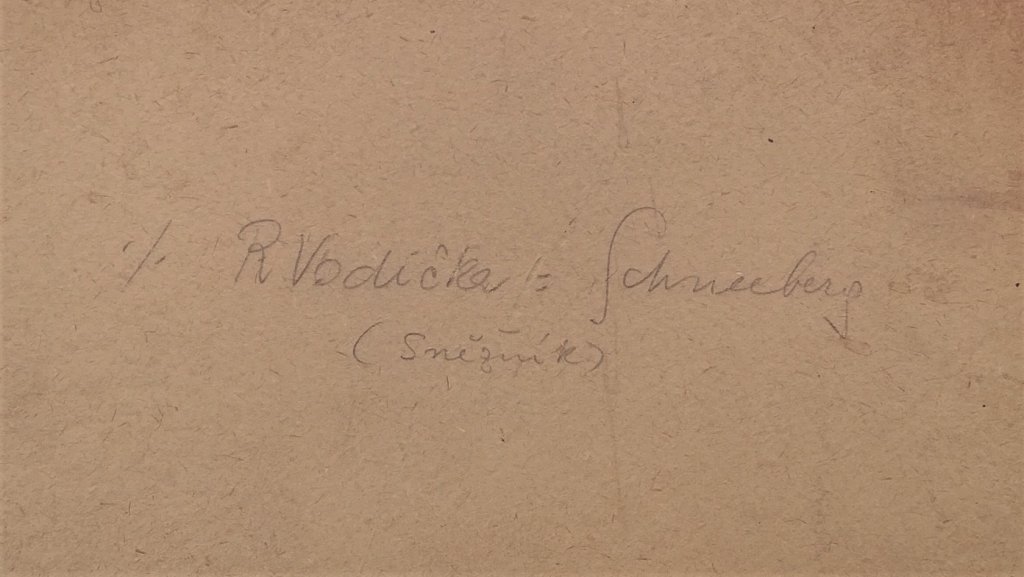 ·/· R Vodička := Schneeberg
(Sněžník)